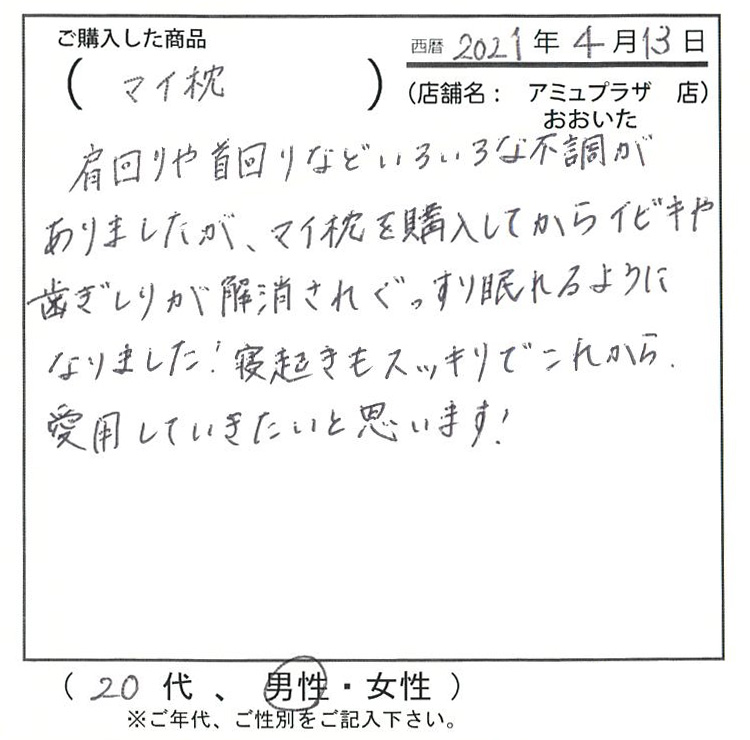 ご購入した商品
西暦 2021年4月13日
(マイ枕)
(店舗名: アミュプラザ 店)
おおいた
肩回りや首回りなどいろいろな不調が
ありましたが、マイ枕を購入してからイビキや
歯ぎしりが解消されぐっすり眠れるように
なりました!寝起きもスッキリでこれから
愛用していきたいと思います!
(20代、男性・女性)
※ご年代、ご性別をご記入下さい。